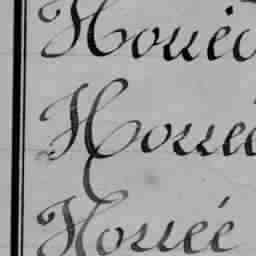 Houée
Houée
Houée